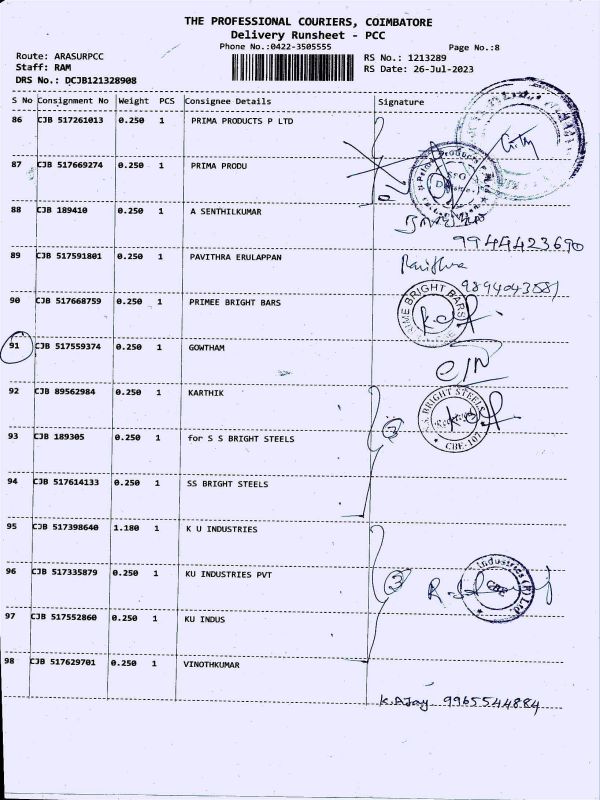 THE PROFESSIONAL COURIERS, COIMBATORE
Delivery Runsheet - PCC
Phone No.:0422-3505555
Page No.:8
Route: ARASURPCC
RS No.: 1213289
Staff: RAM
RS Date: 26-Jul-2023
DRS No.: DCJB121328908
S No Consignment No Weight PCS Consignee Details Signature
86 CJB 517261013 0.250 1 PRIMA PRODUCTS P LTD
87 CJB 517669274 0.250 1 PRIMA PRODU
88 CJB 189410 0.250 1 A SENTHILKUMAR
9944423690
89 CJB 517591801 0.250 1 PAVITHRA ERULAPPAN
Pavithra
9894043581
90 CJB 517668759 0.250 1 PRIMEE BRIGHT BARS
BRIGHT BARS
91 CJB 517559374 0.250 1 GOWTHAM
92 CJB 89562984 0.250 1 KARTHIK
S. BRIGHT STEELS
CBE-107
93 CJB 189305 0.250 1 for S S BRIGHT STEELS
3
94 CJB 517614133 0.250 1 SS BRIGHT STEELS
95 CJB 517398640 1.180 1 K U INDUSTRIES
96 CJB 517335879 0.250 1 KU INDUSTRIES PVT
3
Industries (P) Ltd.
97 CJB 517552860 0.250 1 KU INDUS
98 CJB 517629701 0.250 1 VINOTHKUMAR
K.AJay 9965544884